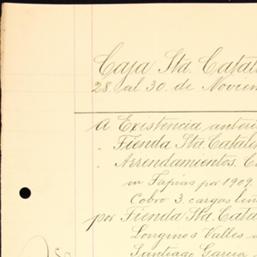 Caja Sta. Catal
28 al 30 de Noviem
A Existencia anteri
" Tienda Sta. Catalin
" Arrendamientos. C
en Tapias por 1909
Cobro 3 cargas leñ
por Tienda Sta. Cata
Longinos Valles
Santiago Garcia